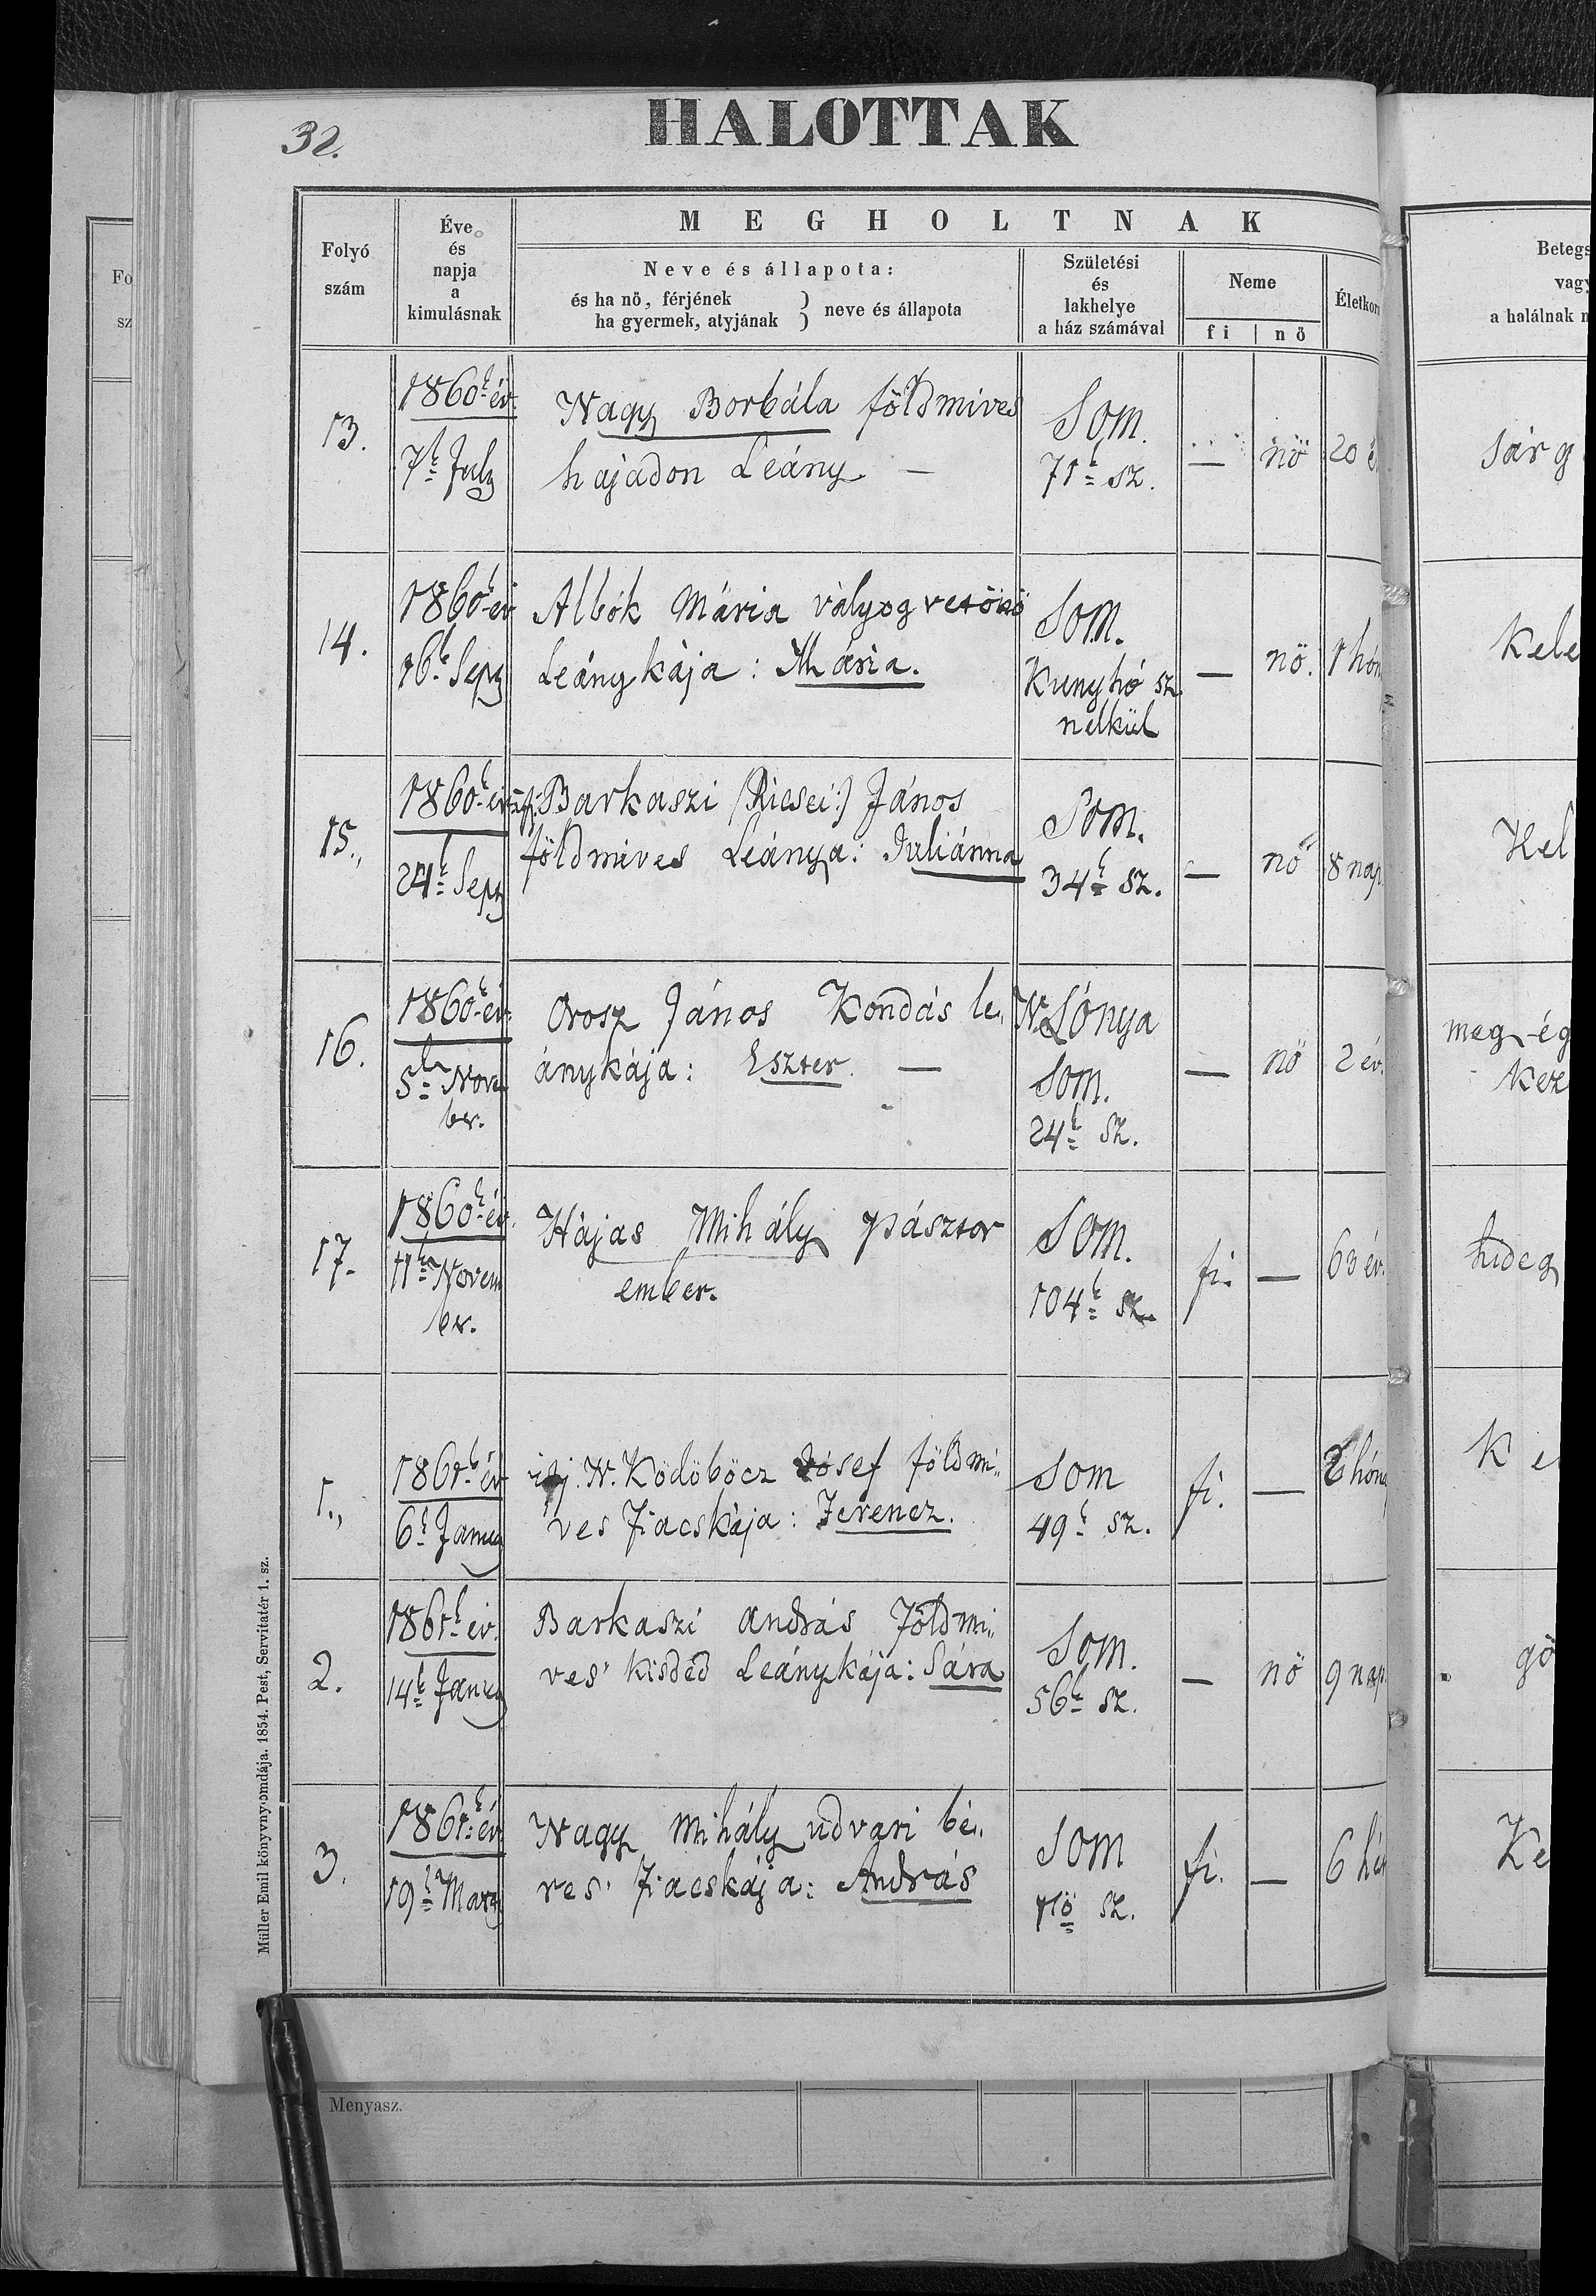 32.
HALOTTAK
Folyó
szám
Éve
és
napja
a
kimulásnak
MEGHOLTNAK
Neve és állapota:
és ha nő, férjének
ha gyermek, atyjának
neve és állapota
Születési
és
lakhelye
a ház számával
Neme
fi | nő
Életkora
13.
1860k év.
7k July
Nagy Borbála földmives
hajadon Leány. —
Som.
71k sz.
—
nö
20 é
14.
1860k év
16k Sept
Albók Mária vályog vetönö
Leánykája: Mária.
Som.
Kunyhó sz.
nelkül
—
nö.
1 hón
15.,
1860k év
24k Sept
Barkaszi (Ricsei:) János
földmives Leánya: Juliánna
Som.
34k sz.
—
nö
8 nap.
16.
1860k év.
5k Nove
ber.
Orosz János Kondás le„
ánykája: Eszter. —
N. Lónya
Som.
24k sz.
—
nö
2 év.
17.
1860k év.
11k Novem
ber.
Hajas Mihály pásztor
ember.
Som.
104k sz.
fi.
—
63 év.
1.,
1861k év
6k Januar
ifj. N. Ködöböcz Jósef földmi„
ves Fiacskája: Ferencz.
Som
49k sz.
fi.
—
hóna
2.
1861k év.
14k Januar
Barkaszi András Földmi„
ves' kisded Leánykája: Sára
Som.
56k sz.
—
nö
9 nap.
3.
1861k év
19k Marz
Nagy Mihály udvari bé„
res' Fiacskája: András
Som
1ö sz.
fi.
—
6 hét
Müller Emil könyvnyomdája. 1854. Pest, Servitatér 1. sz.
Betegs
vagy
a halálnak n
sárg
Kele
Kel
meg-ég
Kez
hideg
Ke
gö
Ke
Fo
sz
Menyasz.